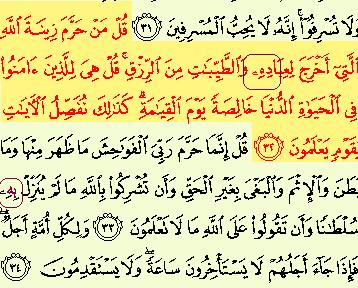 وَلَا تُسْرِفُوٓا۟ ۚ إِنَّهُۥ لَا يُحِبُّ ٱلْمُسْرِفِينَ ٣١ قُلْ مَنْ حَرَّمَ زِينَةَ ٱللَّهِ
ٱلَّتِىٓ أَخْرَجَ لِعِبَادِهِۦ وَٱلطَّيِّبَـٰتِ مِنَ ٱلرِّزْقِ ۚ قُلْ هِىَ لِلَّذِينَ ءَامَنُوا۟
فِى ٱلْحَيَوٰةِ ٱلدُّنْيَا خَالِصَةً يَوْمَ ٱلْقِيَـٰمَةِ ۗ كَذَٰلِكَ نُفَصِّلُ ٱلْـَٔايَـٰتِ
لِقَوْمٍ يَعْلَمُونَ ٣٢ قُلْ إِنَّمَا حَرَّمَ رَبِّىَ ٱلْفَوَٰحِشَ مَا ظَهَرَ مِنْهَا وَمَا
بَطَنَ وَٱلْإِثْمَ وَٱلْبَغْىَ بِغَيْرِ ٱلْحَقِّ وَأَن تُشْرِكُوا۟ بِٱللَّهِ مَا لَمْ يُنَزِّلْ بِهِۦ
سُلْطَـٰنًا وَأَن تَقُولُوا۟ عَلَى ٱللَّهِ مَا لَا تَعْلَمُونَ ٣٣ وَلِكُلِّ أُمَّةٍ أَجَلٌ ۖ
فَإِذَا جَآءَ أَجَلُهُمْ لَا يَسْتَأْخِرُونَ سَاعَةً ۖ وَلَا يَسْتَقْدِمُونَ ٣٤